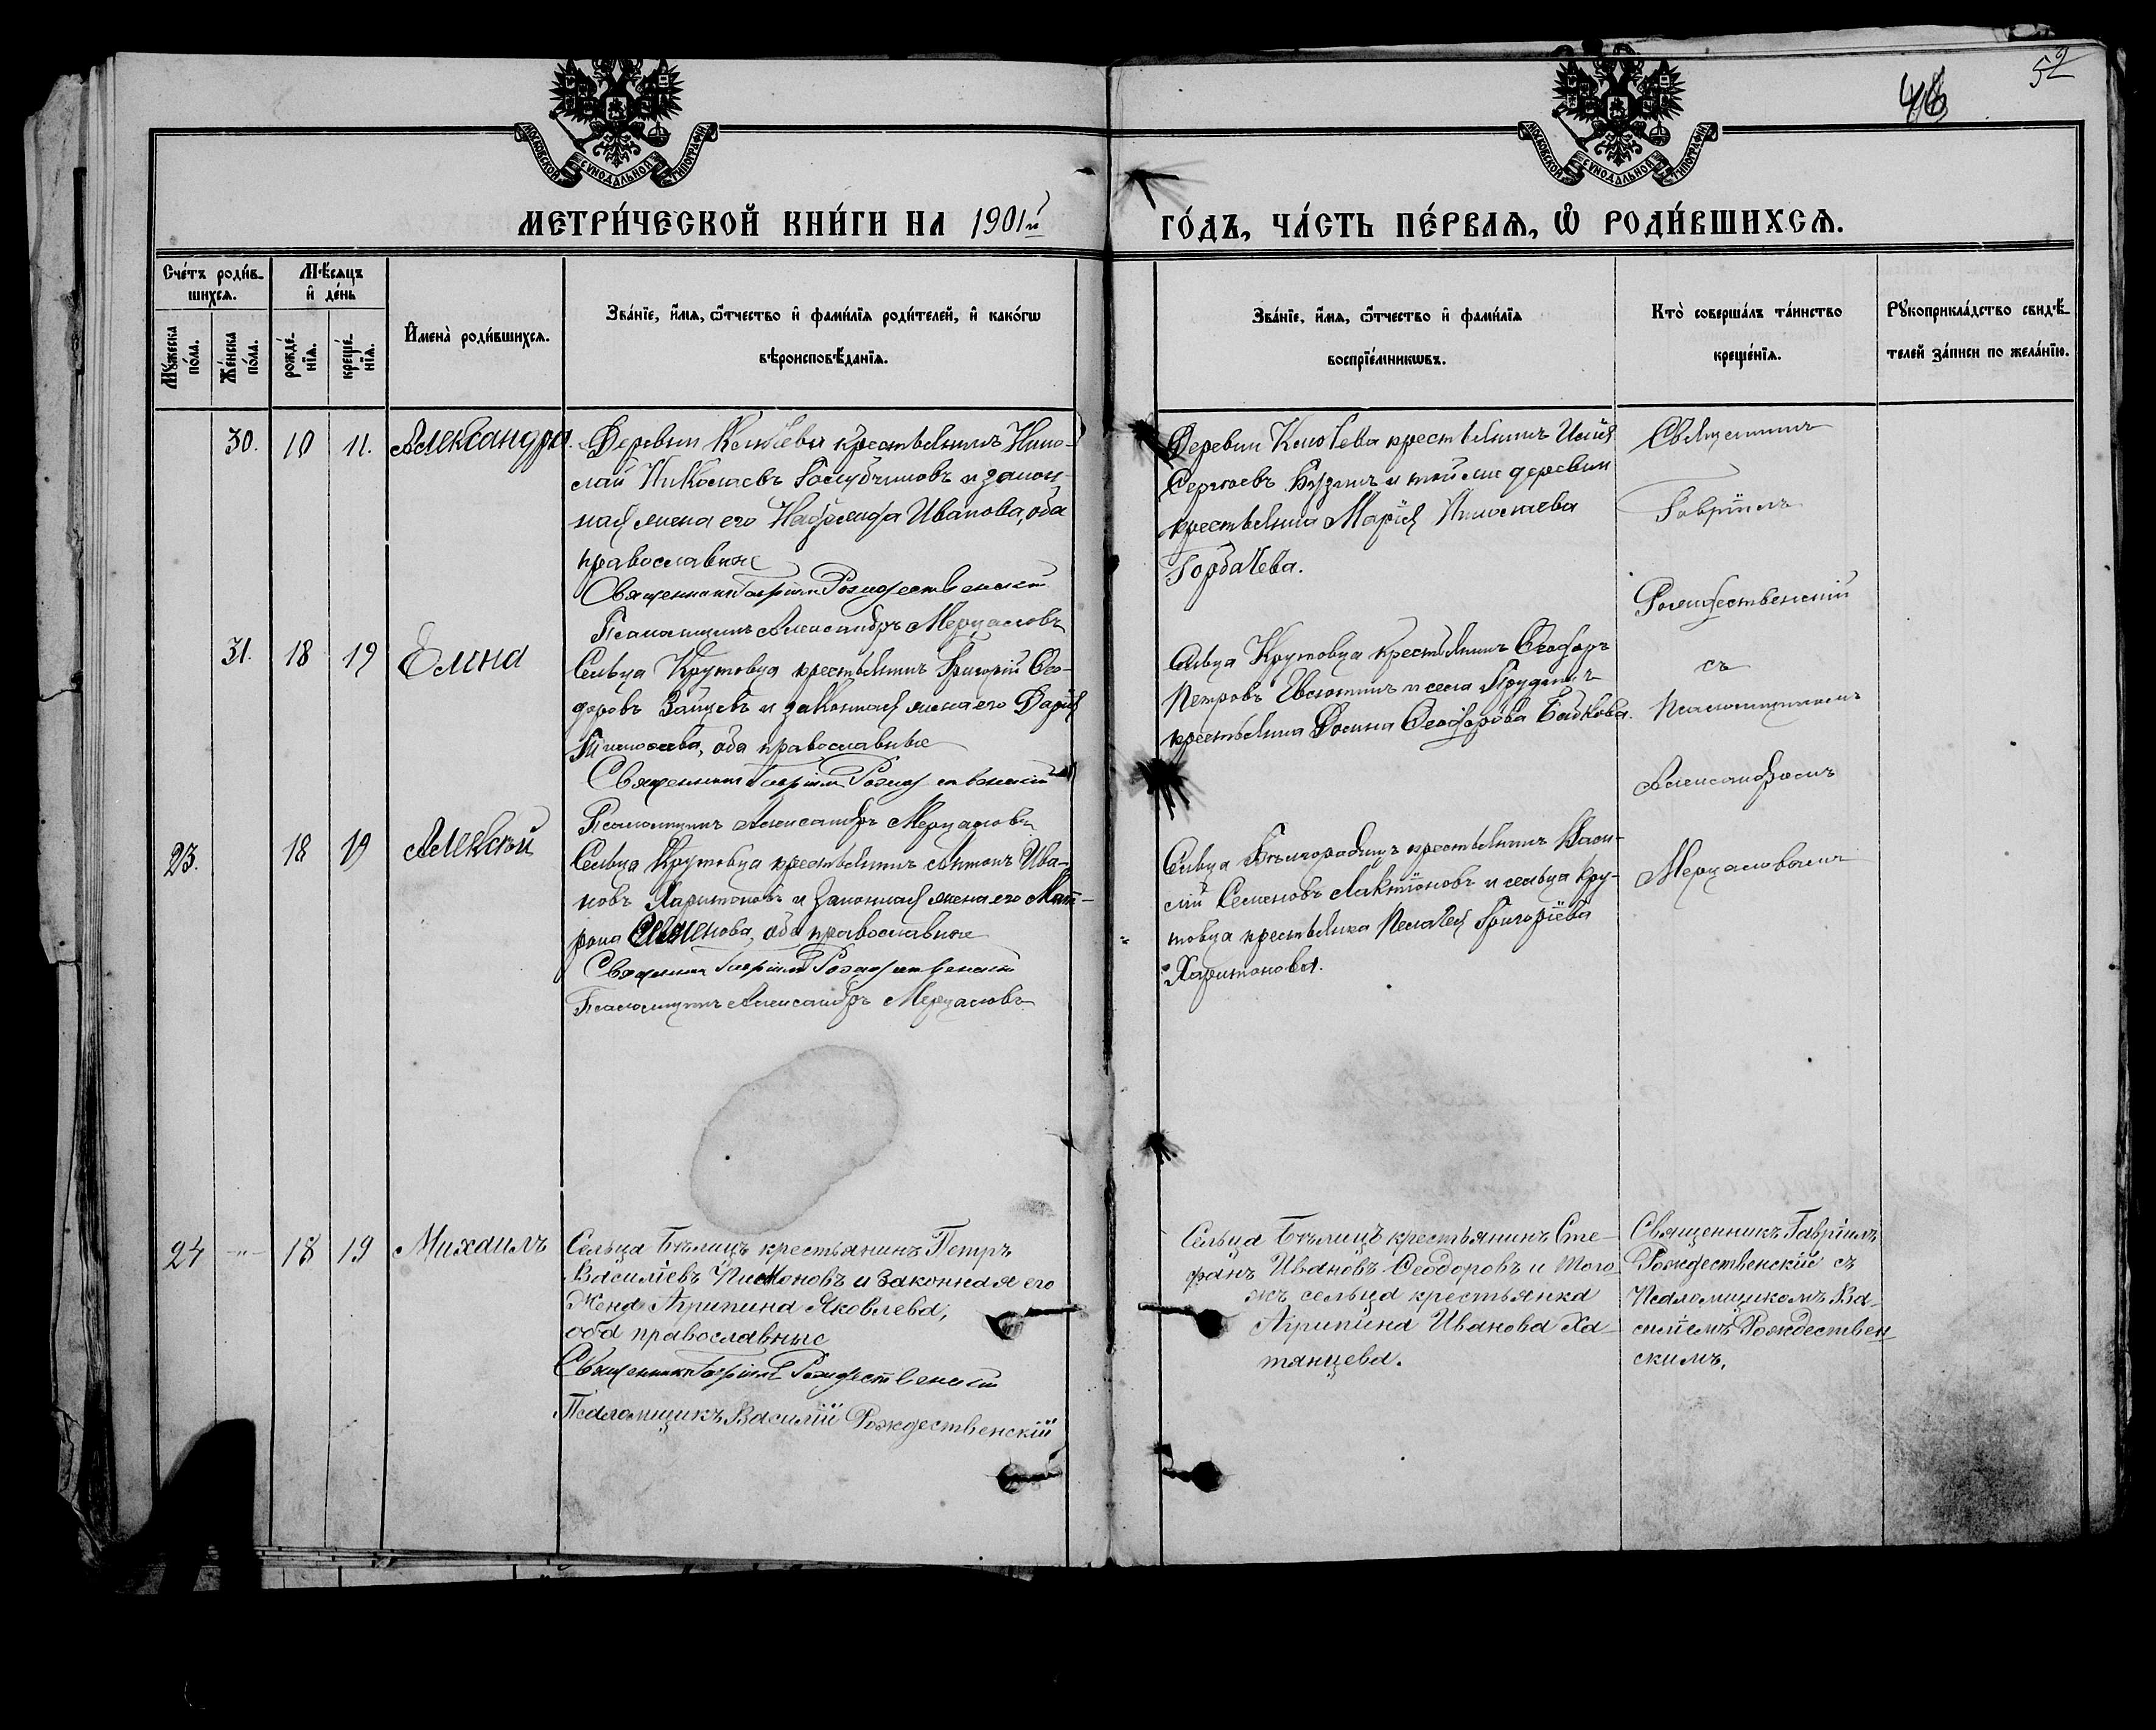 52
46
МОСКОВСКОЙ СѴНОДАЛЬНОЙ ТИПОГРАФІИ
МОСКОВСКОЙ СѴНОДАЛЬНОЙ ТИПОГРАФІИ
МЕТРИ́ЧЕСКОЙ КНИ́ГИ НА 1901й
ГО́ДЪ, ЧА́СТЬ ПЕ́РВАѦ, Ѡ҆ РОДИ́ВШИХСѦ.
Сче́тъ роди́в-
шихсѧ.
Мꙋ́жеска по́ла.
Же́нска по́ла.
Мѣ́сѧцъ
и҆ де́нь
рожде́-нїѧ.
креще́-нїѧ.
И҆мена̀ роди́вшихсѧ.
Зва́нїе, и҆́мѧ, ѻ҆́тчество и҆ фами́лїѧ роди́телей, и҆ како́гѡ
вѣроисповѣ́данїѧ.
Зва́нїе, и҆́мѧ, ѻ҆́тчество и҆ фами́лїѧ
воспрїе́мникѡвъ.
Кто̀ соверша́лъ та́инство
креще́нїѧ.
Рꙋкоприкла́дство свидѣ́-
телей за́писи по жела́нїю.
30. 10 11. Александра.
Деревни Ключева крестьянинъ Нико-
лай Николаевъ Голубчиковъ и закон-
ная жена его Надежда Иванова, оба
православные
Священникъ Гавріилъ Рождественскій
Псаломщикъ Александръ Мерцаловъ
Деревни Ключева крестьянинъ Илія
Сергѣевъ и той же деревни
крестьянка Марія Николаева
Горбачева.
Священникъ
Гавріилъ
Рождественскій
съ
Псаломщикомъ
Александромъ
Мерцаловымъ
31. 18 19 Елена
Сельца Крутовца крестьянинъ Григорій Ѳео-
доровъ Зайцевъ и законная жена его Дарія
Тимоѳеева, оба православные
Священникъ Гавріилъ Рождественскій
Псаломщикъ Александръ Мерцаловъ
Сельца Крутовца крестьянинъ Ѳеодоръ
Петровъ и села
крестьянка Ѳеодорова
23. 18 19 Алексѣй
Сельца Крутовца крестьянинъ Антонъ Ива-
новъ Харитоновъ и законная жена его Мат-
рона Семенова, оба православные
Священникъ Гавріилъ Рождественскій
Псаломщикъ Александръ Мерцаловъ
Сельца крестьянинъ Васи-
лій Семеновъ Лактіоновъ и сельца Кру-
товца крестьянка Пелагея Григоріева
Харитонова.
24 -"- 18 19 Михаилъ
Сельца Бѣлицъ крестьянинъ Петръ
Василіевъ и законная его
жена Агрипина Яковлева,
оба православные
Священникъ Гавріилъ Рождественскій
Псаломщикъ Василій Рождественскій
Сельца Бѣлицъ крестьянинъ Сте-
фанъ Ивановъ Ѳеодоровъ и того-
жъ сельца крестьянка
Агрипина Иванова Ха-
тянцева.
Священникъ Гавріилъ
Рождественскій съ
Псаломщикомъ Ва-
силіемъ Рождествен-
скимъ.